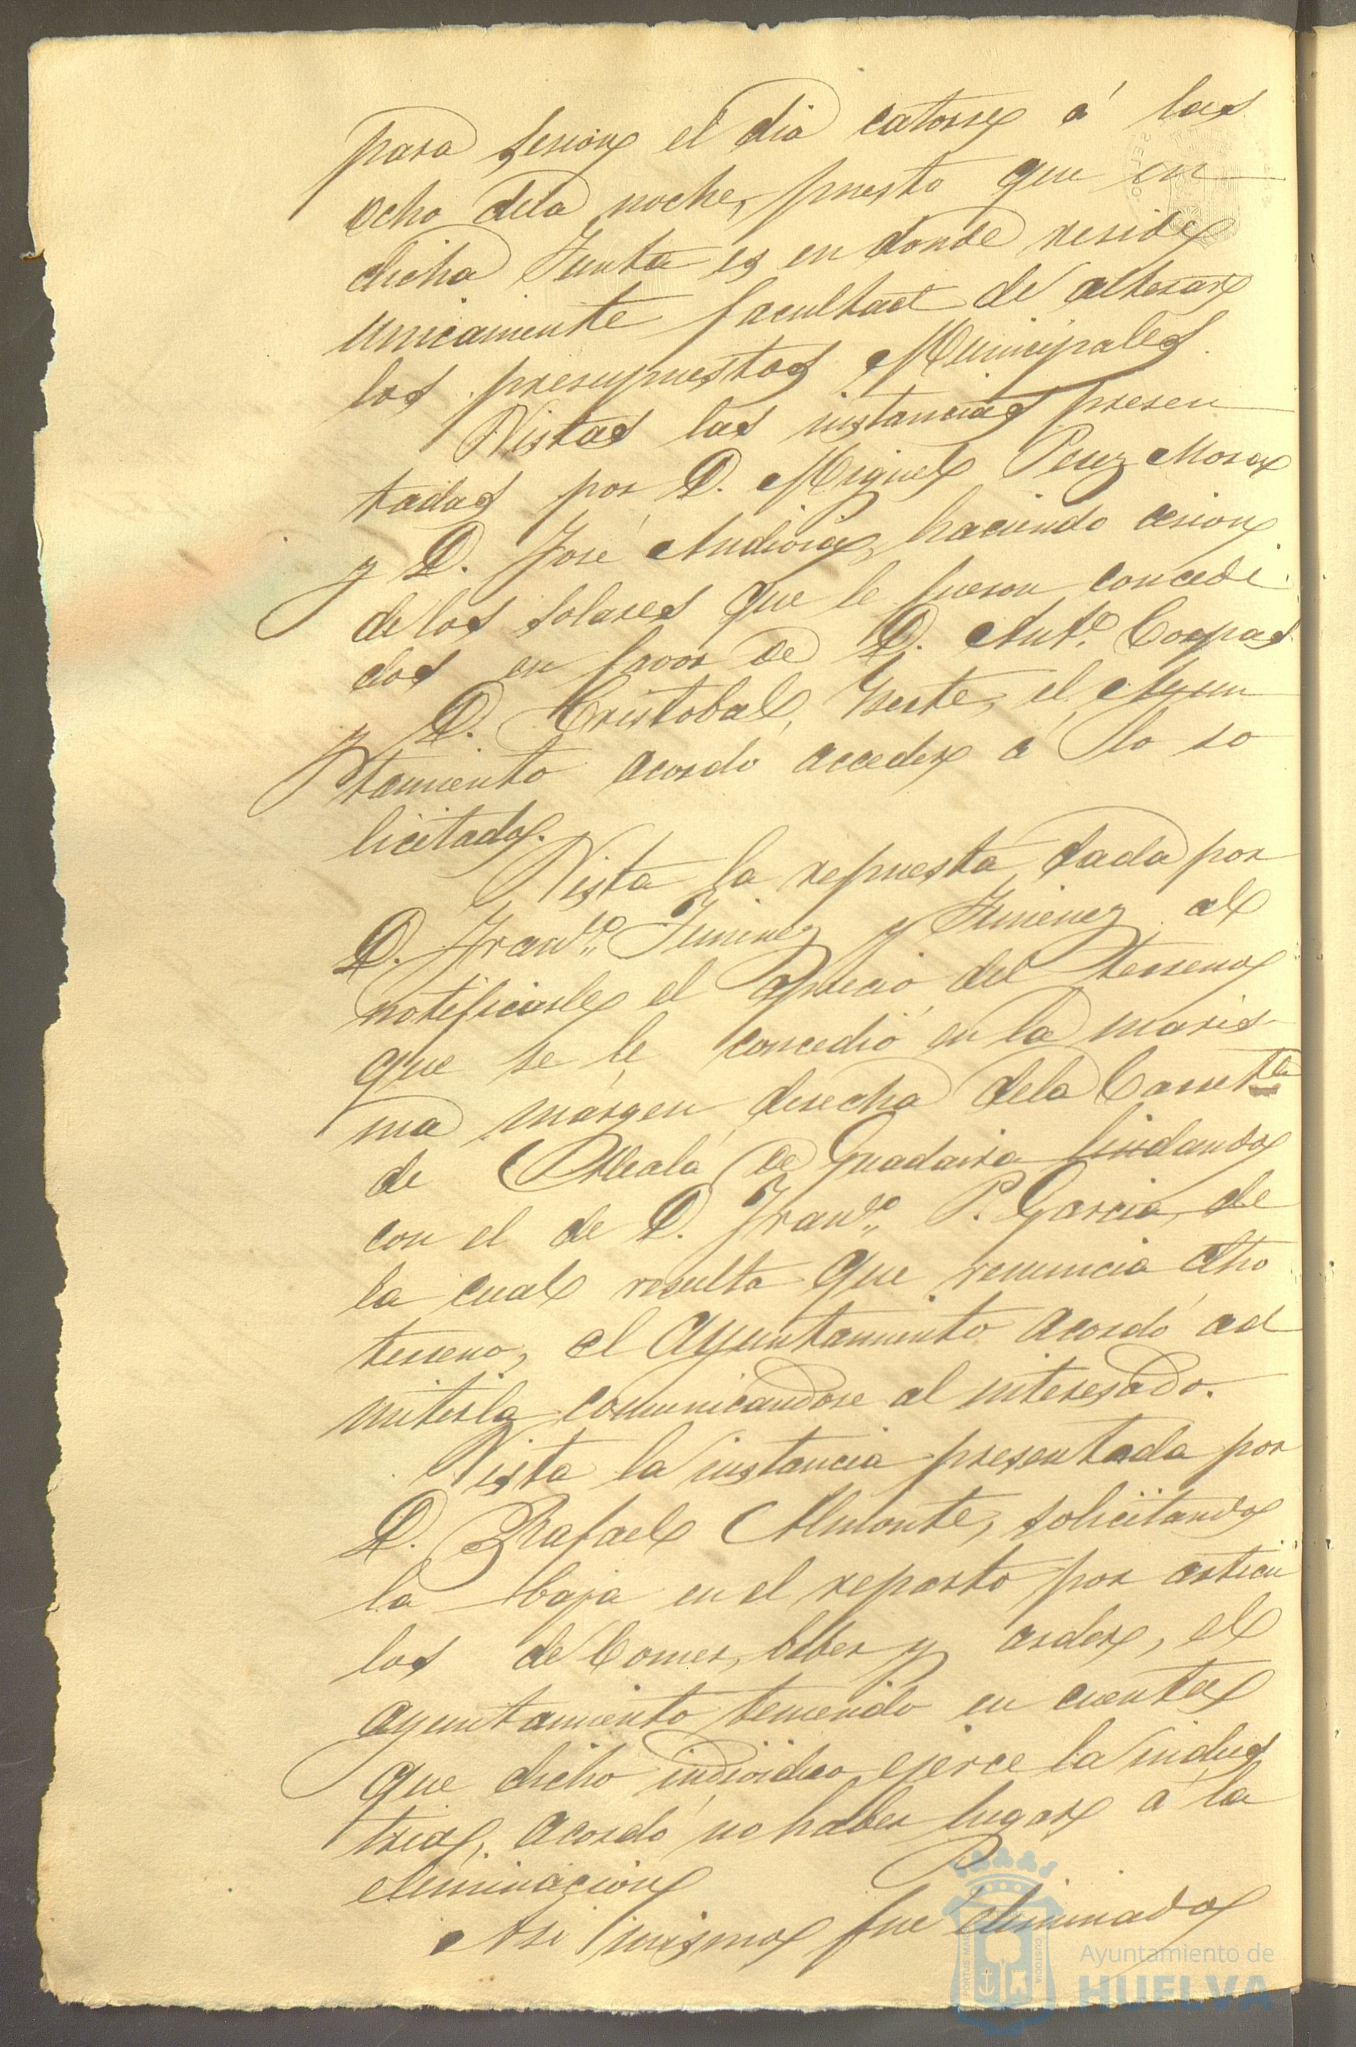 para sesion el dia catorse á las
ocho dela noche, puesto que en
dicha Junta es en donde reside
unicamente facultad de alterar
los presupuestos Municipales.
Vistas las instancias presen
tadas por D. Miguel Perez Mora
y D. José haciendo cesion
de los solares que le fueron concedi
dos en favor de D. Antº. Corpas
y D. Cristobal el Ayun
tamiento acordó acceder á lo so
licitado.
Vista la repuesta dada por
D. Franco. Jimenez y Jimenez al
notificarle el aprecio del terreno
que se le concedió en la maris
ma márgen derecha dela Carretla
de Alcalá de Guadaira lindando
con el de D. Franco. P. Garcia, de
la cual resulta que renuncia dho
terreno, el Ayuntamiento acordó ad
mitirla comunicandose al interesado.
Vista la instancia presentada por
D. Rafael Almonte, solicitando
la baja en el reparto por articu
los de Comer, beber y arder, el
ayuntamiento teniendo en cuenta
que dicho individuo ejerce la indus
tria, acordó no haber lugar á la
eliminacion
Asi mismo fue eliminado
Ayuntamiento de
HUELVA